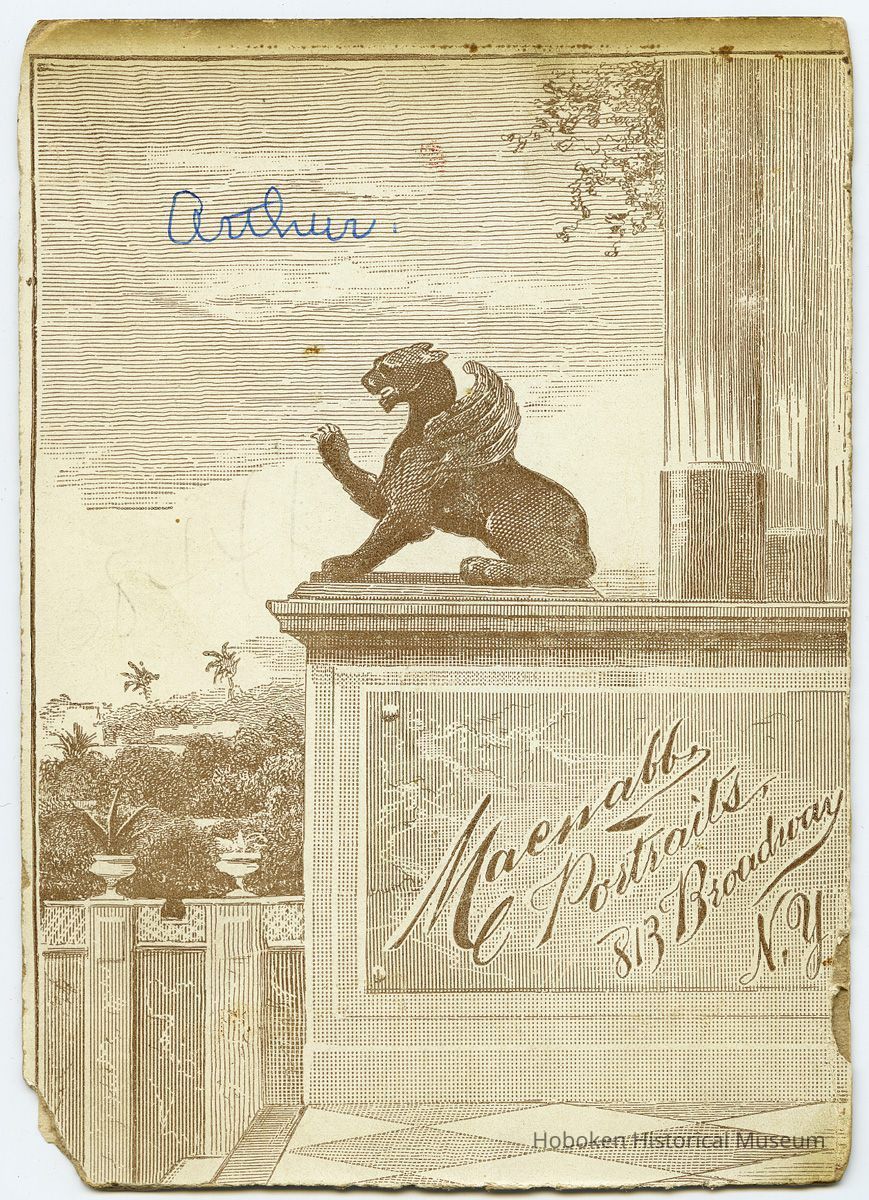 Arthur.
Macnabb,
Portraits,
813 Broadway
N.Y.
Hoboken Historical Museum